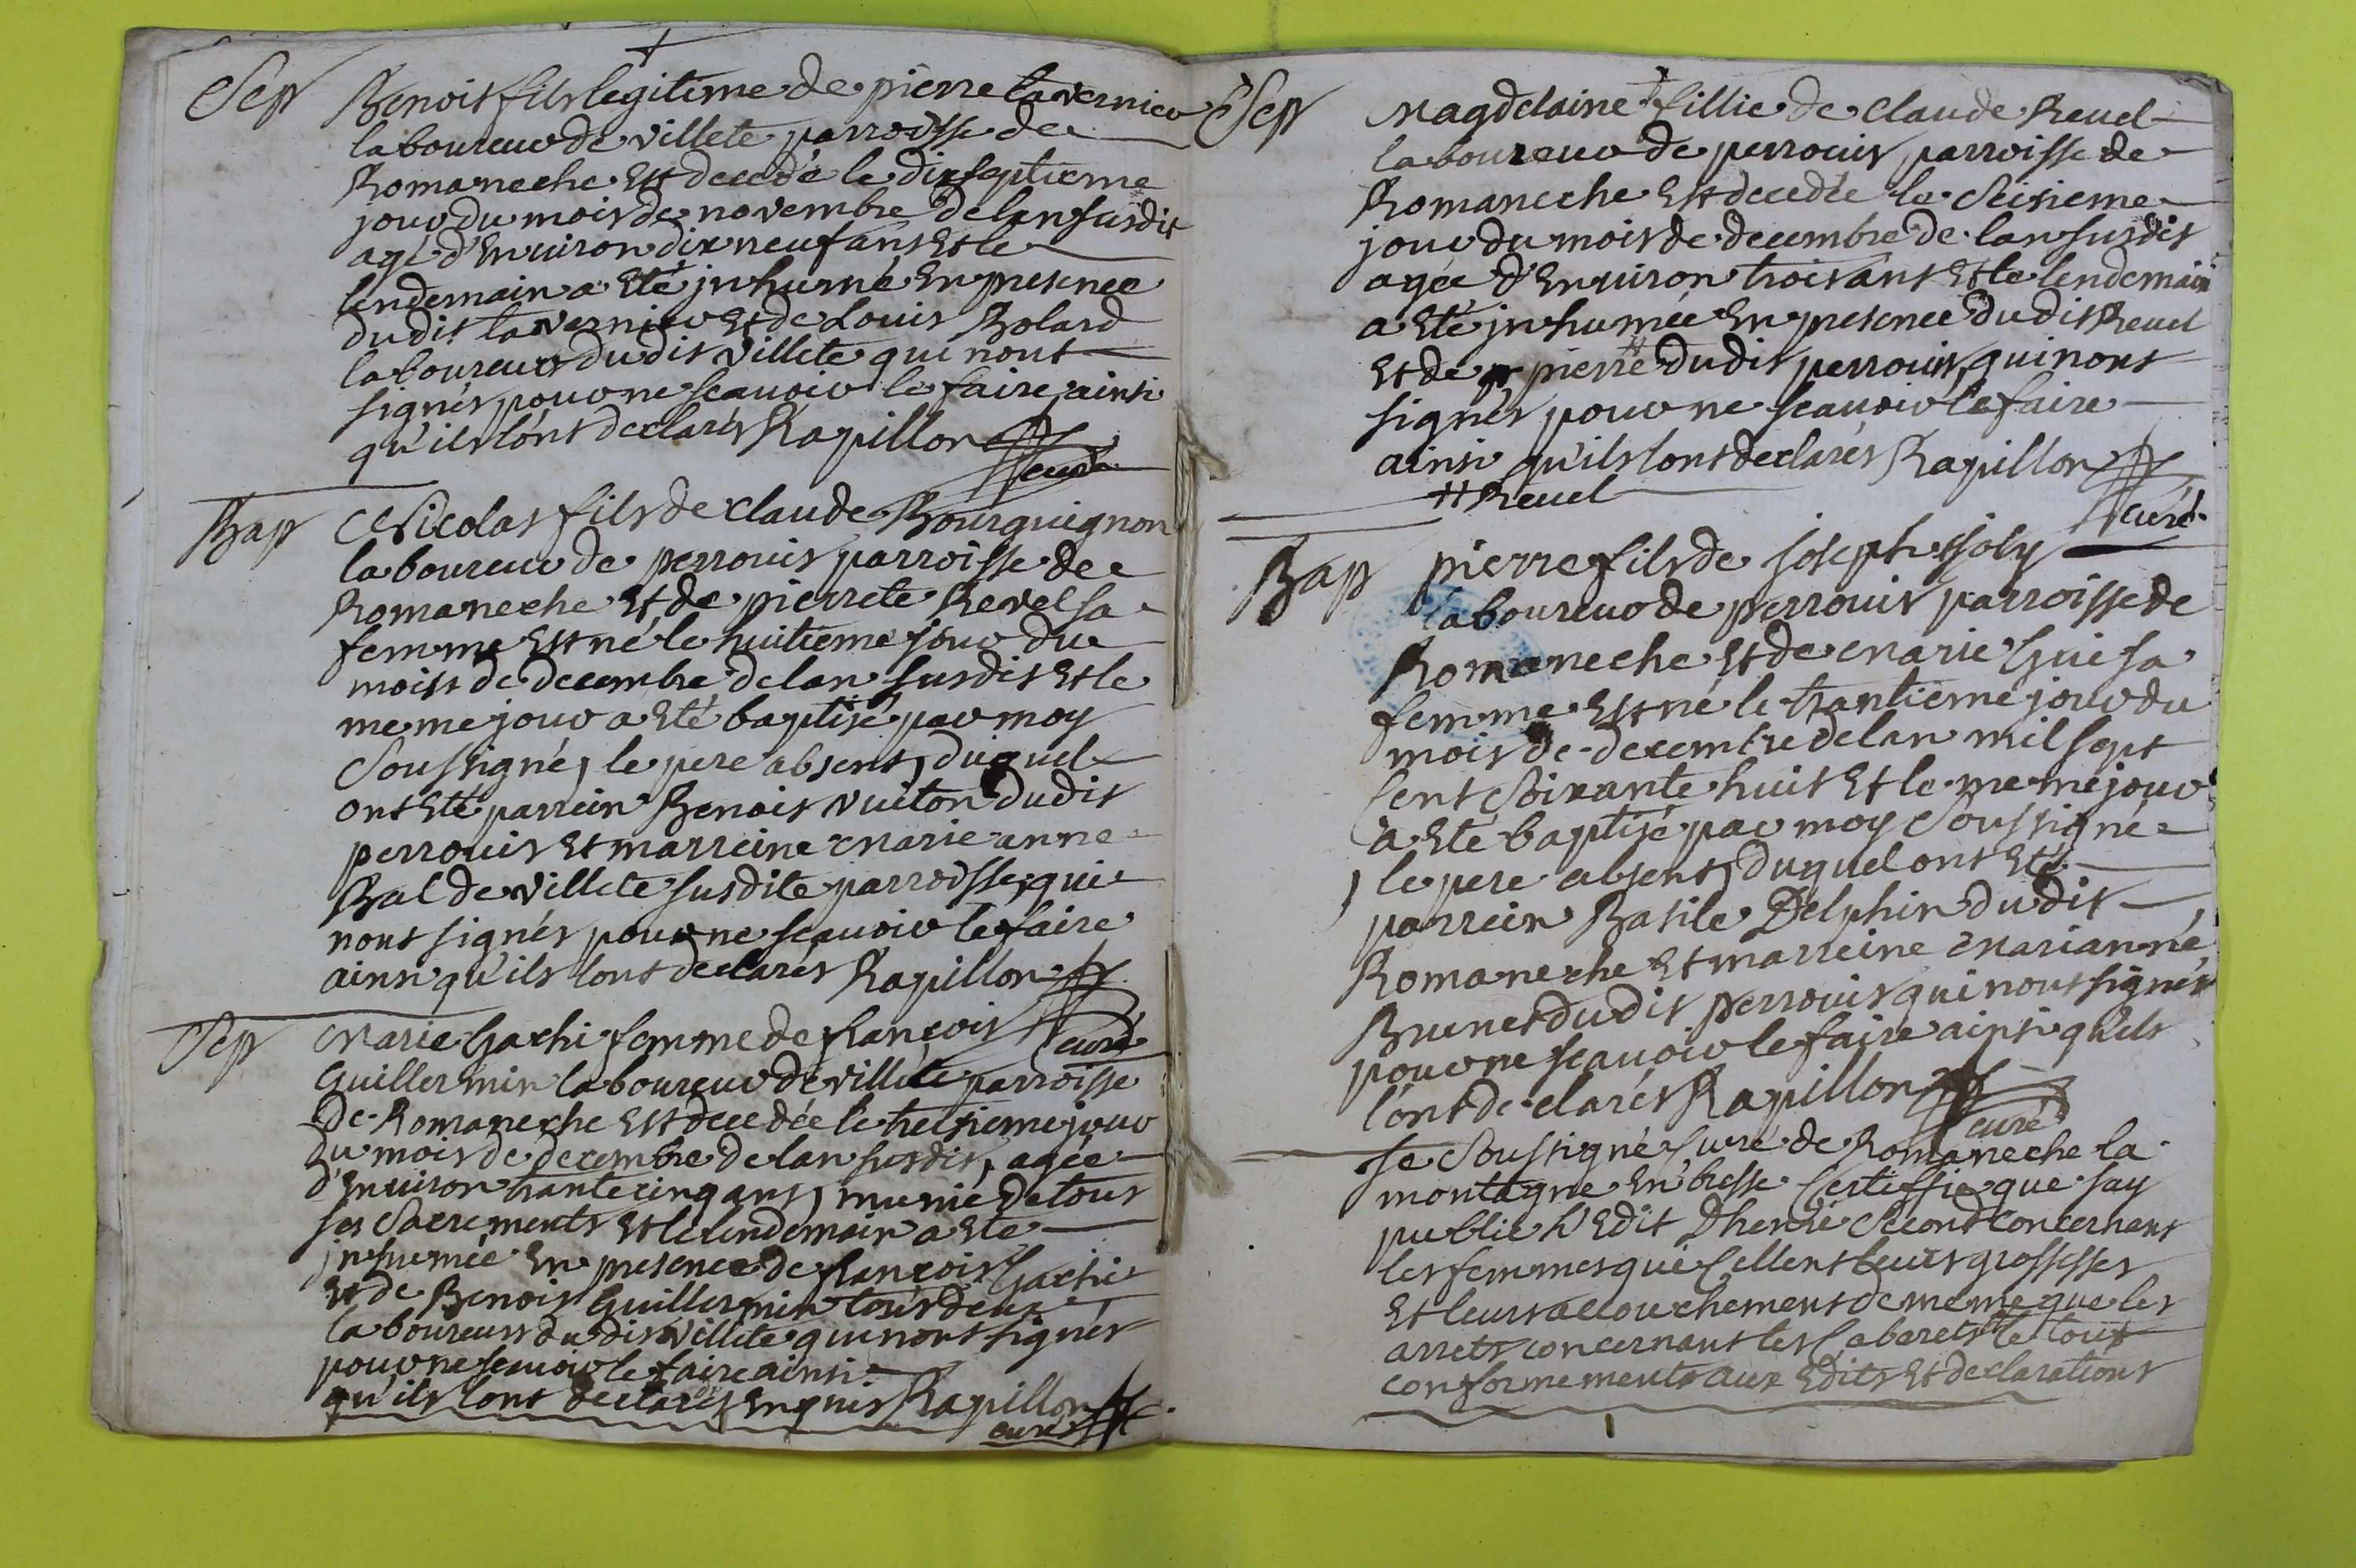 Sep
Benoit fils legitime de pierre lavernier
laboureur de villete parroisse de
Romaneche Est decedé le dixseptieme
jour du mois de novembre de lan susdit
agé d'Environ dix neuf ans Et le
lendemain a Eté jnhumé En presence
dudit lavernier Et de Louis Bolard
laboureur dudit villete qui n'ont
signés pour ne scauoir le faire ainsi
qu'ils lont declarés Rapillon
curé
Bap
Nicolas fils de claude Bourguignon
laboureur de perrouis parroisse de
Romaneche Et de pierrete Revel sa
femme Est né le huitieme jour du
mois de decembre de lan susdit Et le
meme jour a Eté baptisé par moy
Soussigné, le pere absent, duquel
ont Eté parrein Benoit vuiton dudit
perrouis Et marreine marie anne
Bal de villete susdite parroisse, qui
nont signés pour ne scauoir le faire
ainsi qu'ils lont declarés Rapillon
curé
Sep
Marie Gachi femme de francois
Guillermin laboureur de villete parroisse
de Romaneche Est decedée le tresieme jour
du mois de decembre de lan susdit, agée
d'Enuiron trante cinq ans, munie de tous
ses Sacrements Et le lendemain a Ete
jnhumée En presence de francois Gachi
Et de Benois Guillermin tous deux
laboureurs dudit villete qui nont signés
pour ne scauoir le faire ainsi
qu'ils lont declarés Enquis Rapillon
curé
Sep
Magdelaine fillie de Claude Reuel
laboureur de perrouis parroisse de
Romaneche Est decedée le Seisieme
jour du mois de decembre de lan susdit
agée d'Enuiron trois ans Et le lendemain
a Eté jnhumée En presence dudit Reuel
Et de pierre # dudit perrouis, qui nont
signés pour ne scauoir le faire
ainsi qu'ils lont declarés Rapillon
# Reuel
curé
Bap
pierre fils de joseph joly
laboureur de perrouis parroisse de
Romaneche Et de marie Gui sa
femme Est né le trantieme jour du
mois de decembre de lan mil sept
Cent Soixante huit Et le meme jour
a Eté baptisé par moy Soussigné
, le pere absent, duquel ont Eté
parrein Basile Delphin dudit
Romaneche Et marreine Marianne
Brunet dudit perrouis qui nont signés
pour ne scauoir le faire ainsi qu'ils
l'ont declarés Rapillon
curé
Je Soussigné Curé de Romaneche la
montagne En bresse Certiffie que jay
publié L'Edit D'henri Second Concernant
les femmes qui Cellent leurs grossesses
Et leurs accouchements de meme que les
arrets concernant les Cabarets le tout
conformements aux Edits Et declarations